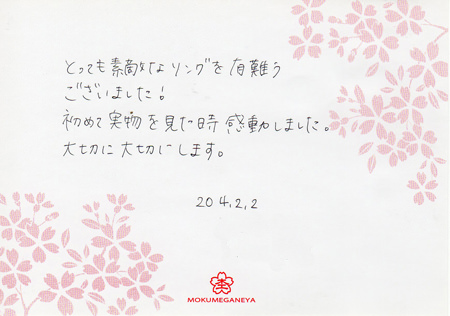 とっても素敵なリングを有難う
ございました！
初めて実物を見た時感動しました。
大切に大切にします。
204.2.2
MOKUMEGANEYA